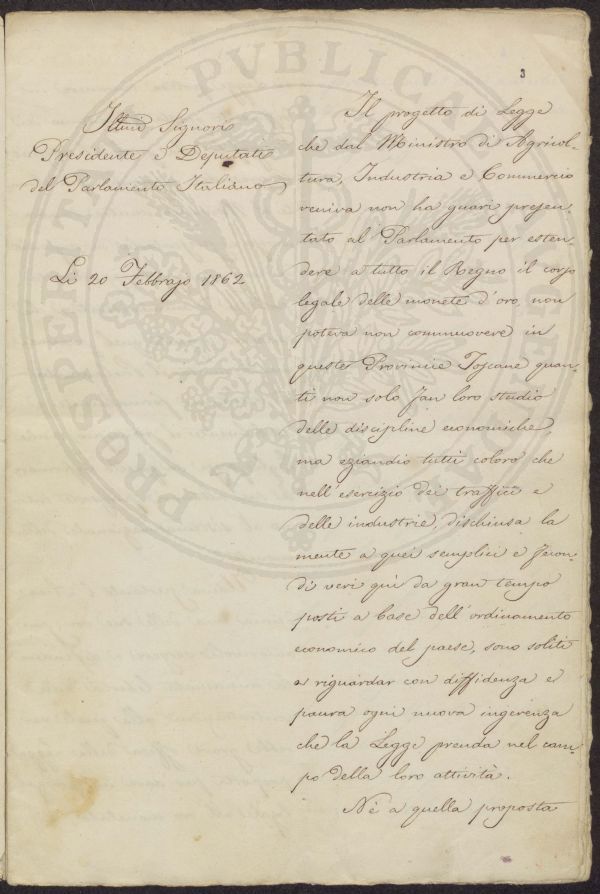 3
Illmi Signori
Presidente e Deputati
del Parlamento Italiano
Li 20 Febbrajo 1862
Il progetto di Legge
che dal Ministro di Agricol-
tura, Industria e Commercio
veniva non ha guari presen-
tato al Parlamento per esten-
dere a tutto il Regno il corso
legale delle monete d'oro, non
poteva non commuovere in
queste Provincie Toscane quan-
ti non solo fan loro studio
delle discipline economiche,
ma eziandio tutti coloro che
nell'esercizio dei traffici e
delle industrie, dischiusa la
mente a quei semplici e fecon-
di veri quì da gran tempo
posti a base dell'ordinamento
economico del paese, sono soliti
a riguardar con diffidenza e
paura ogni nuova ingerenza
che la Legge prenda nel cam-
po della loro attività.
Nè a quella proposta
PROSPERITA PVBLICA